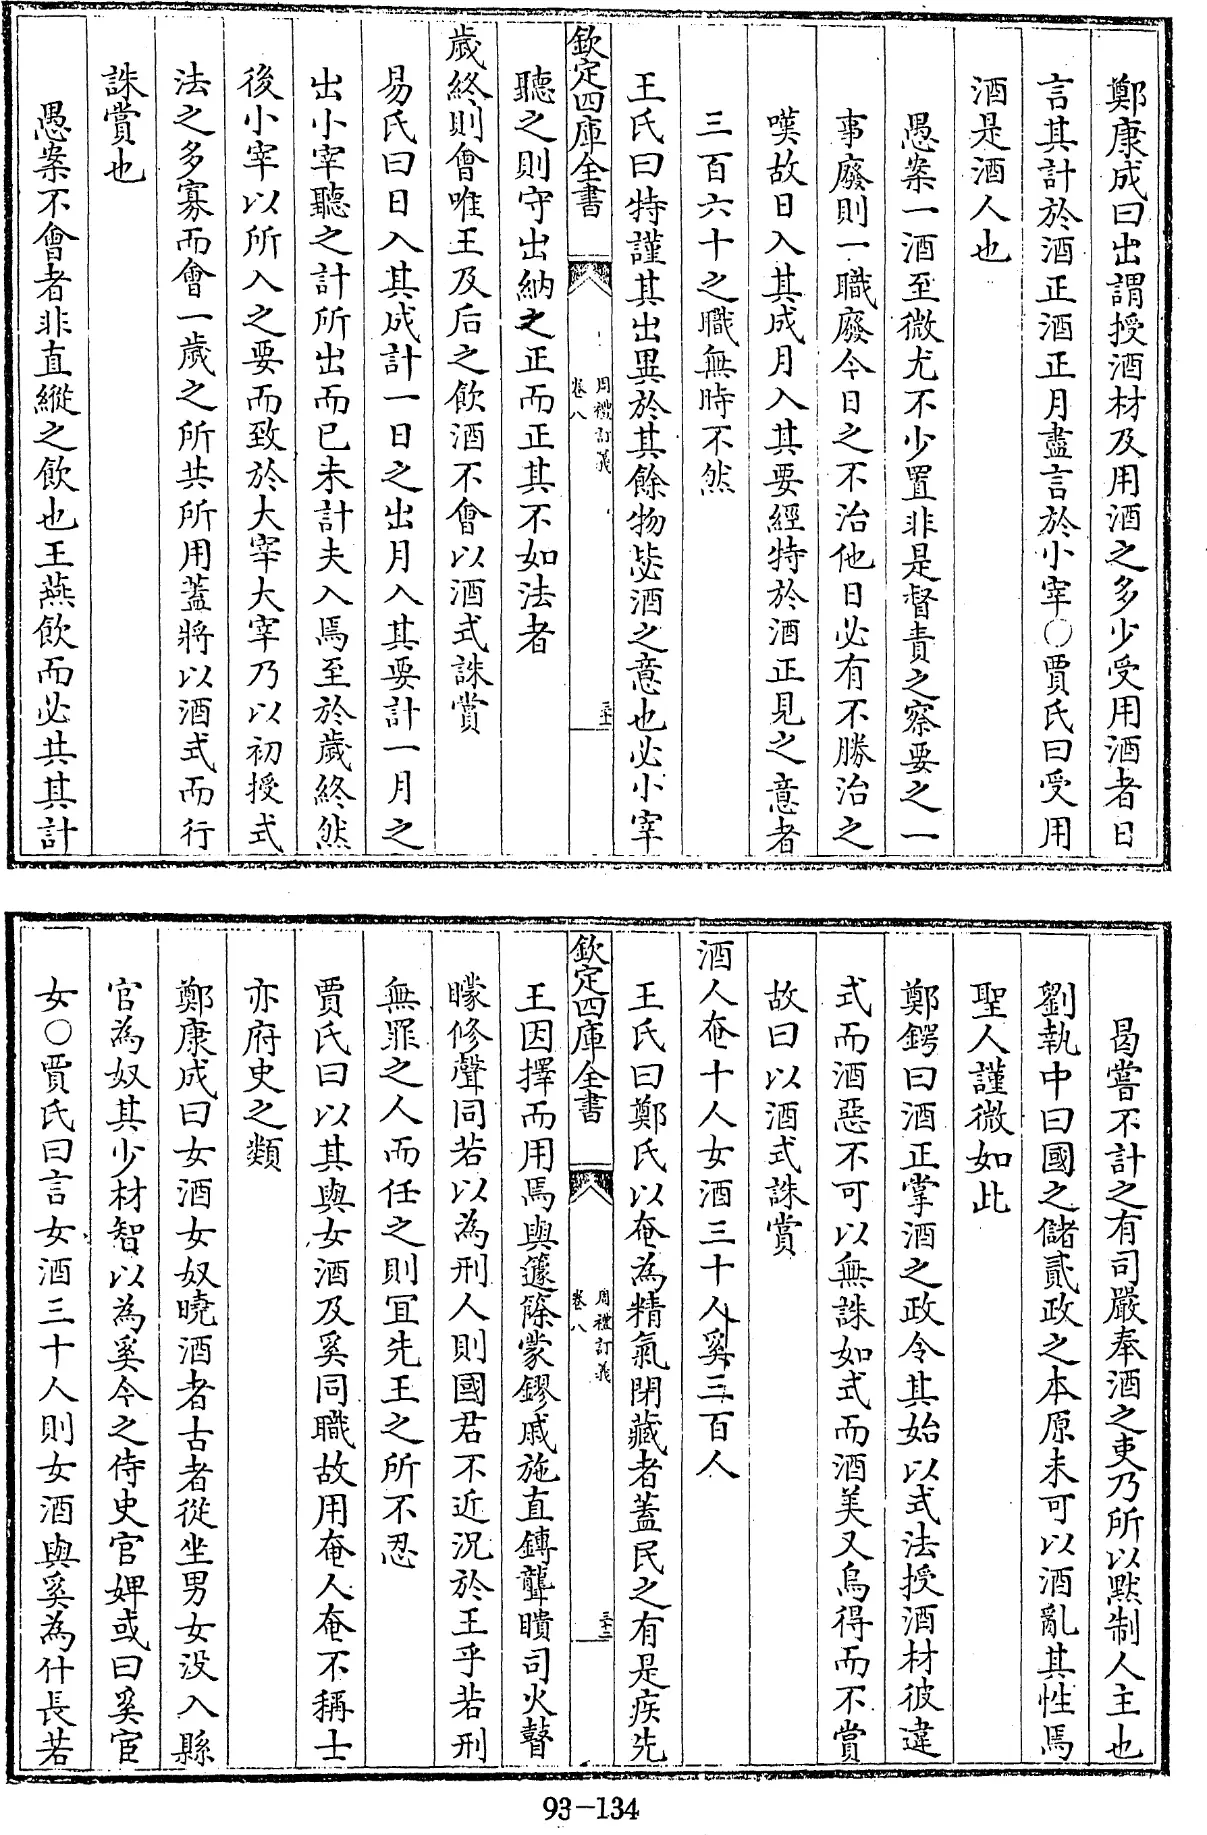 鄭康成曰出謂授酒材及用酒之多少受用酒者日
言其計於酒正酒正月盡言於小宰〇賈氏曰受用
酒是酒人也
愚案一酒至微尤不少置非是督責之察要之一
事廢則一職廢今日之不治他日必有不勝治之
嘆故日入其成月入其要經特於酒正見之意者
三百六十之職無時不然
王氏曰特謹其出異於其餘物毖酒之意也必小宰
欽定四庫全書
周禮訂義
卷八
三十一
聽之則守出納之正而正其不如法者
歲終則會唯王及后之飲酒不會以酒式誅賞
易氏曰日入其成計一日之出月入其要計一月之
出小宰聽之計所出而已未計夫入焉至於歲終然
後小宰以所入之要而致於大宰大宰乃以初授式
法之多寡而會一歲之所共所用蓋將以酒式而行
誅賞也
愚案不會者非直縱之飲也王燕飲而必共其計
曷嘗不計之有司嚴奉酒之吏乃所以黙制人主也
劉執中曰國之儲貳政之本原未可以酒亂其性焉
聖人謹微如此
鄭鍔曰酒正掌酒之政令其始以式法授酒材彼違
式而酒惡不可以無誅如式而酒美又烏得而不賞
故曰以酒式誅賞
酒人奄十人女酒三十人奚三百人
王氏曰鄭氏以奄為精氣閉藏者蓋民之有是疾先
欽定四庫全書
周禮訂義
卷八
三十二
王因擇而用焉與籧篨蒙鏐戚施直鎛聾聵司火瞽
矇修聲同若以為刑人則國君不近況於王乎若刑
無罪之人而任之則宜先王之所不忍
賈氏曰以其與女酒及奚同職故用奄人奄不稱士
亦府史之類
鄭康成曰女酒女奴曉酒者古者從坐男女没入縣
官為奴其少材智以為奚今之侍史官婢或曰奚宦
女〇賈氏曰言女酒三十人則女酒與奚為什長若
93-134